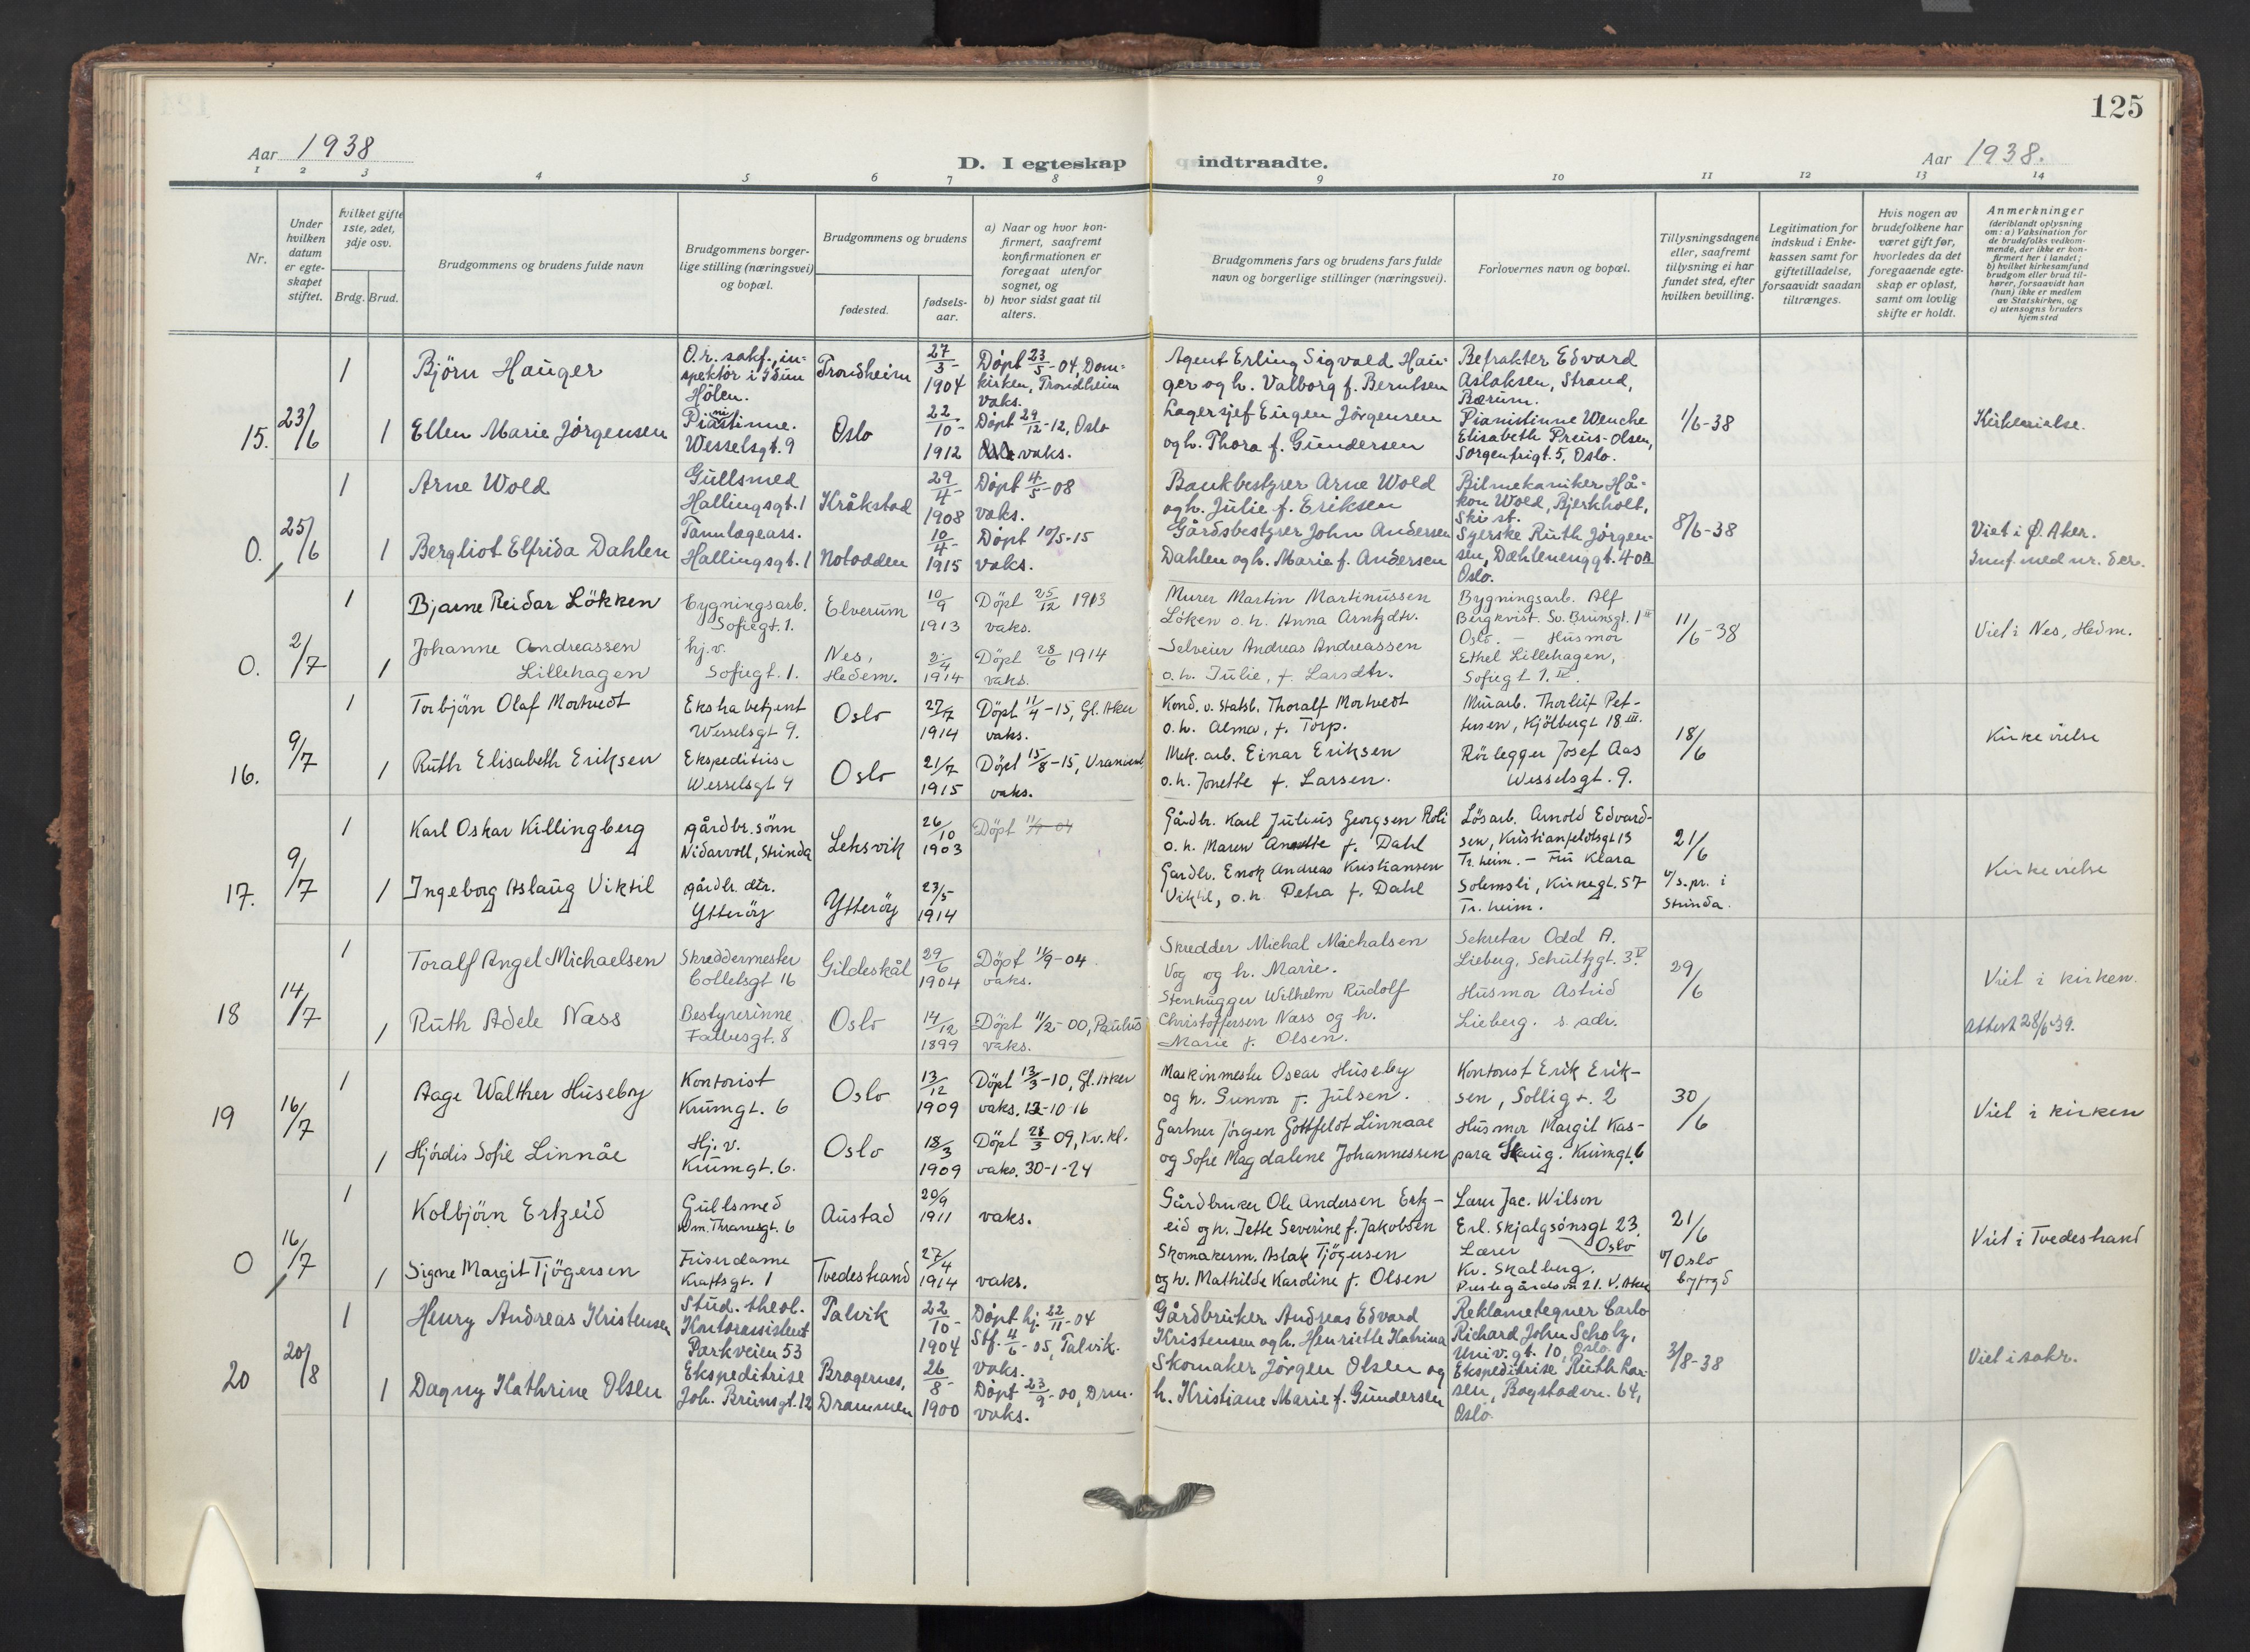 125
Aar 1938
D. I egteskap indtraadte.
Aar 1938.
1 2 3 4 5 6 7 8 9 10 11 12 13 14
Nr.
Under hvilken datum er egteskapet stiftet.
hvilket gifte 1ste, 2det, 3dje osv.
Brdg. Brud.
Brudgommens og brudens fulde navn
Brudgommens borgerlige stilling (næringsvei) og bopæl.
Brudgommens og brudens
fødested.
fødselsaar.
a) Naar og hvor konfirmert, saafremt konfirmationen er foregaat utenfor sognet, og
b) hvor sidst gaat til alters.
Brudgommens fars og brudens fars fulde navn og borgerlige stillinger (næringsvei).
Forlovernes navn og bopæl.
Tillysningsdagene eller, saafremt tillysning ei har fundet sted, efter hvilken bevilling.
Legitimation for indskud i Enkekassen samt for giftetilladelse, forsaavidt saadan tiltrænges.
Hvis nogen av brudefolkene har været gift før, hvorledes da det foregaaende egteskap er opløst, samt om lovlig skifte er holdt.
Anmerkninger
(deriblandt oplysning om: a) Vaksination for de brudefolks vedkommende, der ikke er konfirmert her i landet;
b) hvilket kirkesamfund brudgom eller brud tilhører, forsaavidt han (hun) ikke er medlem av Statskirken, og
c) utensogns bruders hjemsted
15. 23/6
1 Björn Hauger
O.r. sakf., in-
spektör i Idun
Hölen.
Trondheim
27/3-1904
Döpt 23/5-04, Dom-
kirken, Trondheim
vaks.
Agent Erling Sigvald Hau-
ger og h. Valborg f. Berntsen
Befrakter Edvard
Aslaksen, Strand,
Bærum.
1 Ellen Marie Jörgensen
Pianistinne.
Wesselsgt. 9
Oslo
22/10-1912
Döpt 29/12-12, Oslo
vaks.
Lagersjef Eugen Jörgensen
og h. Thora f. Gundersen
Pianistinne Wenche
Elisabeth Preus-Olsen,
Sorgenfrigt. 5, Oslo.
1/6-38
Kirkevielse.
0. 25/6
1 Arne Wold
Gullsmed
Hallingsgt. 1
Kråkstad
29/4-1908
Döpt 4/5-08
vaks.
Bankbestyrer Arne Wold
og h. Julie f. Eriksen
Bilmekaniker Hå-
kon Wold, Bjerkholt,
Ski st.
1 Bergliot Elfrida Dahlen
Tannlægeass.
Hallingsgt. 1
Notodden
10/4-1915
Döpt 10/5-15
vaks.
Gårdsbestyrer John Andersen
Dahlen og h. Marie f. Andersen
Syerske Ruth Jörgen-
sen, Dæhlenenggt. 40
Oslo.
8/6-38
Viet i Ø. Aker.
Innf. med nr. der.
0. 2/7
1 Bjarne Reidar Lökken
bygningsarb.
Sofiegt. 1.
Elverum
10/9 1913
Döpt 25/12 1913
vaks.
Murer Martin Martinussen
Löken o. h. Anna Arntzdtr.
Bygningsarb. Alf
Bergkvist. Sv. Brunsgt. 1 III
Oslo. - Husmor
1 Johanne Andreassen
Lillehagen
hj.v.
Sofiegt. 1.
Nes,
Hedem.
2/4 1914
Döpt 28/6 1914
vaks.
Selveier Andreas Andreassen
o. h. Julie, f. Larsdtr.
Ethel Lillehagen,
Sofiegt 1. IV.
11/6-38
Viet i Nes, Hedm.
16. 9/7
1 Torbjörn Olaf Mortvedt
Ekstrabetjent
Wesselsgt 9.
Oslo
27/7 1914
Döpt 11/4-15, Gl. Aker
vaks.
Kond. v. Statsb. Thoralf Mortvedt
o. h. Alma, f. Torp.
Murarb. Thorleif Pet-
tersen, Kjölbergt 18 III.
1 Ruth Elisabeth Eriksen
Ekspeditrise
Wesselsgt 9
Oslo
21/7 1915
Döpt 15/8-15, Uranienb.
vaks.
Mek. arb. Einar Eriksen
o. h. Jonette f. Larsen.
Rörlegger Josef Aas
Wesselsgt. 9.
18/6
Kirkevielse
17. 9/7
1 Karl Oskar Killingberg
gårdbr. sönn
Nidarvoll, Strinda
Leksvik
26/10 1903
Döpt 11/9-04
Gårdbr. Karl Julius Georgsen Roli
o. h. Maren Anette f. Dahl
Lösarb. Arnold Edvard-
sen, Kristianfeldtsgt 13
Tr.heim. - Fru Klara
1 Ingeborg Aslaug Viktil
gårdbr. dtr.
Ytteröy
Ytteröy
23/5 1914
Gardbr. Enok Andreas Kristiansen
Viktil, o. h. Petra f. Dahl
Solemsli, Kirkegt. 57
Tr. heim.
21/6
v/ s.pr. i
Strinda.
Kirkevielse
18 14/7
1 Toralf Angel Michaelsen
Skreddermester
Colletsgt 16
Gildeskål
29/6 1904
Döpt 11/9-04
vaks.
Skredder Michal Michalsen
Vog og h. Marie.
Sekretær Odd A.
Lieberg, Schultzgt. 3 V.
1 Ruth Adele Næss
Bestyrerinne
Falbesgt. 8
Oslo
14/12 1899
Döpt 11/2-00, Paulus
vaks.
Stenhugger Wilhelm Rudolf
Christoffersen Næss og h.
Marie f. Olsen.
Husmor Astrid
Lieberg. s. adr.
29/6
Viet i kirken.
Attest 28/6-39.
19 16/7
1 Aage Walther Huseby
Kontorist
Krumgt. 6
Oslo
13/12 1909
Döpt 13/3-10, Gl. Aker
vaks. 12-10-16
Maskinmester Oscar Huseby
og h. Gunvor f. Julsen.
Kontorist Erik Erik-
sen, Sollig t. 2
1 Hjördis Sofie Linnåe
Hj. v.
Krumgt. 6.
Oslo
18/3 1909
Döpt 28/3 09, Kv. kl.
vaks. 30-1-24
Gartner Jörgen Gottfeldt Linnaae
og Sofie Magdalene Johannessen
Husmor Margit Kas-
para Skaug. Krumgt. 6
30/6
Viet i kirken
0 16/7
1 Kolbjörn Ertzeid
Gullsmed
Wm. Thranesgt. 6
Austad
20/9 1911
vaks.
Gårdbruker Ole Andersen Ertz-
eid og h. Jette Severine f. Jakobsen
Lærer Jac. Wilson
Erl. Skjalgsönsgt 23.
Oslo
1 Signe Margit Tjögersen
Friserdame
Kraftsgt. 1
Tvedestrand
27/4 1914
vaks.
Skomakerm. Aslak Tjögersen
og h. Mathilde Karoline f. Olsen
Lærer
Kr. Skalberg.
Prestegårdsvn 21. V. Aker
21/6
v/ Oslo
byfogd
Viet i Tvedestrand
20 20/8
1 Henry Andreas Kristensen
Stud. theol.
Kontorassistent
Parkveien 53
Talvik
22/10-1904
Döpt hj. 22/11-04
Stf. 4/6-05, Talvik.
vaks.
Gårdbruker Andreas Edvard
Kristensen og h. Henriette Katrina
Reklametegner Carlo
Richard John Scholz,
Univ.gt. 10, Oslo.
1 Dagny Kathrine Olsen
Ekspeditrise
Joh. Brunsgt. 12
Bragernes,
Drammen
26/8-1900
Döpt 23/9-00, Drm.
vaks.
Skomaker Jörgen Olsen og
h. Kristiane Marie f. Gundersen
Ekspeditrise Ruth Lar-
sen, Bogstadvn. 64,
Oslo.
3/8-38
Viet i sakr.